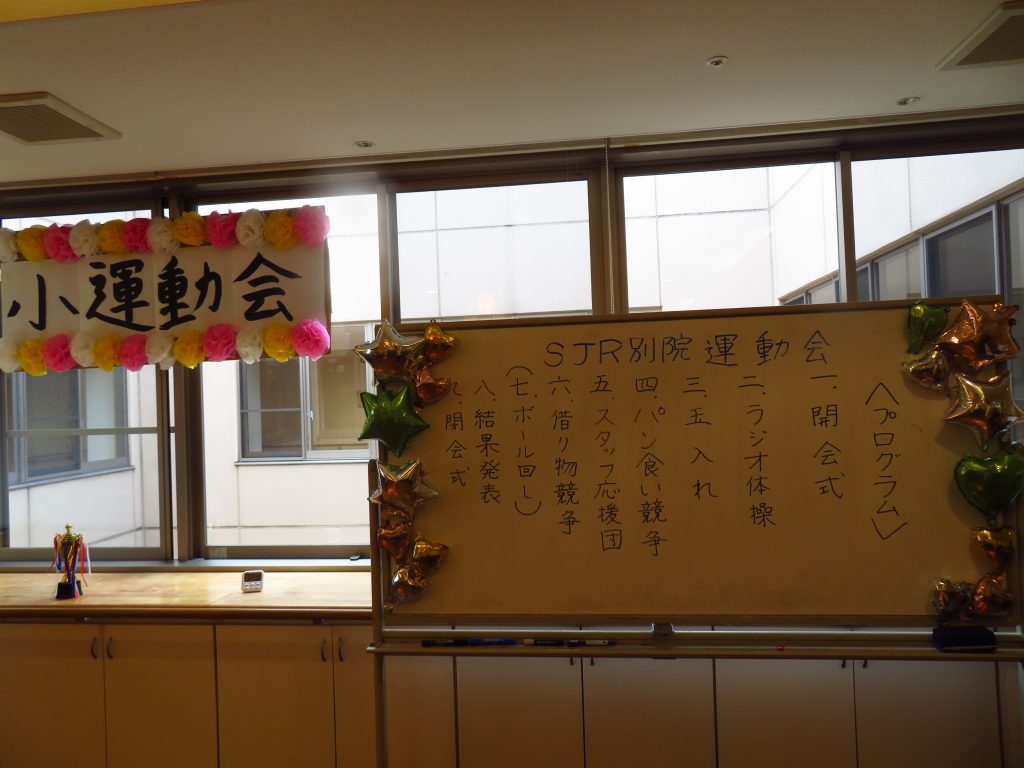 小運動会
SJR別院運動会
〈プログラム〉
一.開会式
二.ラジオ体操
三.玉入れ
四.パン食い競争
五.スタッフ応援団
六.借り物競争
(七.ボール回し)
八.結果発表
九.閉会式